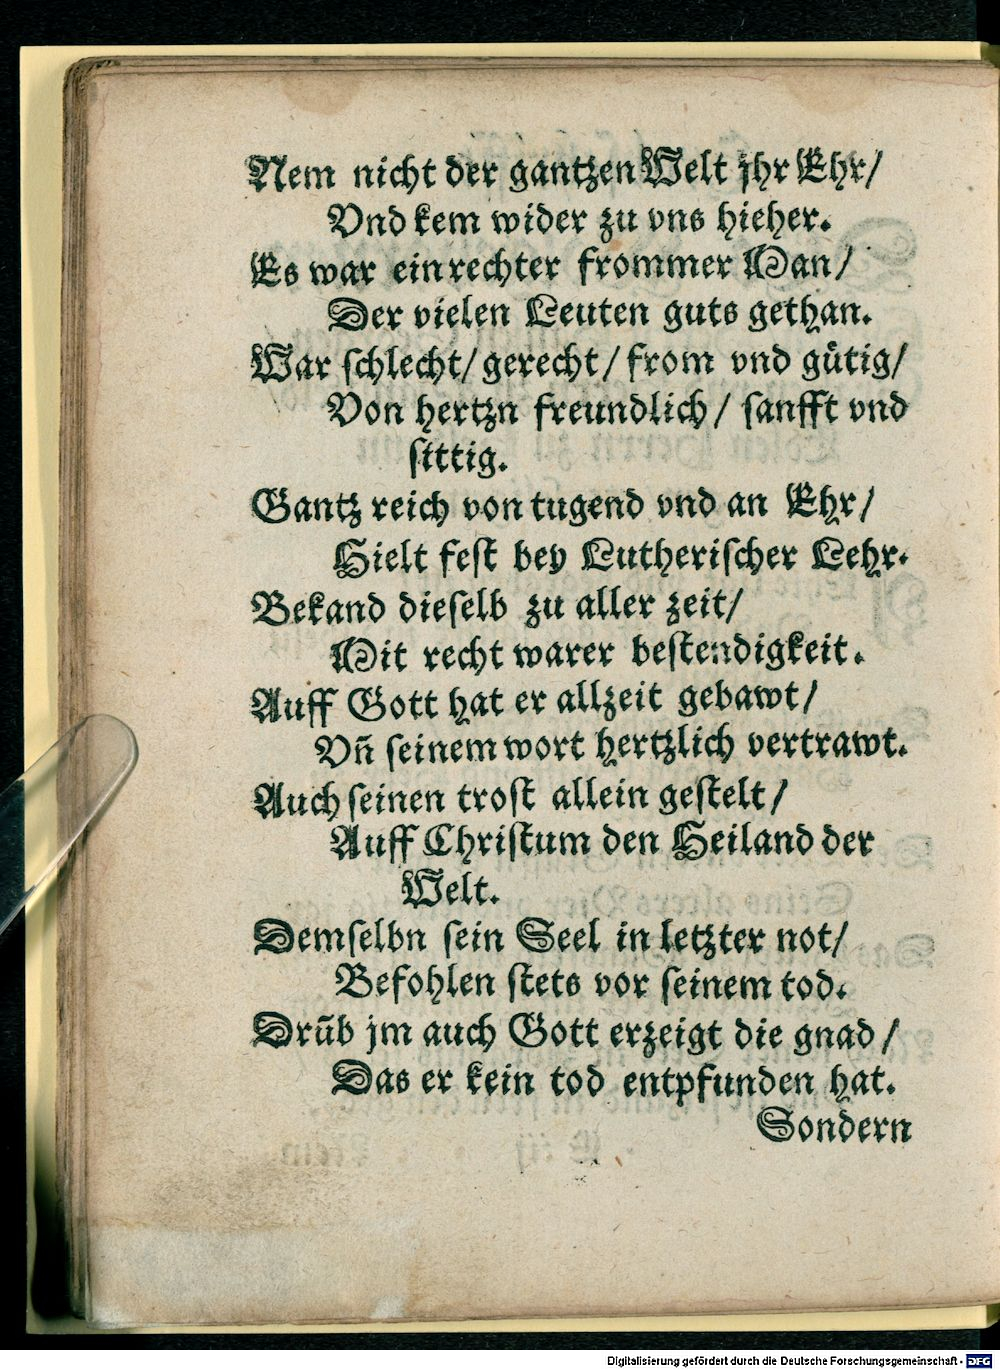 Nem nicht der gantzen Welt jhr Ehr/
Vnd kem wider zu vns hieher.
Es war ein rechter frommer Man/
Der vielen Leuten guts gethan.
War schlecht/ gerecht/ from vnd gütig/
Von hertzn freundlich/ sanfft vnd
sittig.
Gantz reich von tugend vnd an Ehr/
Hielt fest bey Lutherischer Lehr.
Bekand dieselb zu aller zeit/
Mit recht warer bestendigkeit.
Auff Gott hat er allzeit gebawt/
Vñ seinem wort hertzlich vertrawt.
Auch seinen trost allein gestelt/
Auff Christum den Heiland der
Welt.
Demselbn sein Seel in letzter not/
Befohlen stets vor seinem tod.
Drūb jm auch Gott erzeigt die gnad/
Das er kein tod entpfunden hat.
Sondern
Digitalisierung gefördert durch die Deutsche Forschungsgemeinschaft - DFG